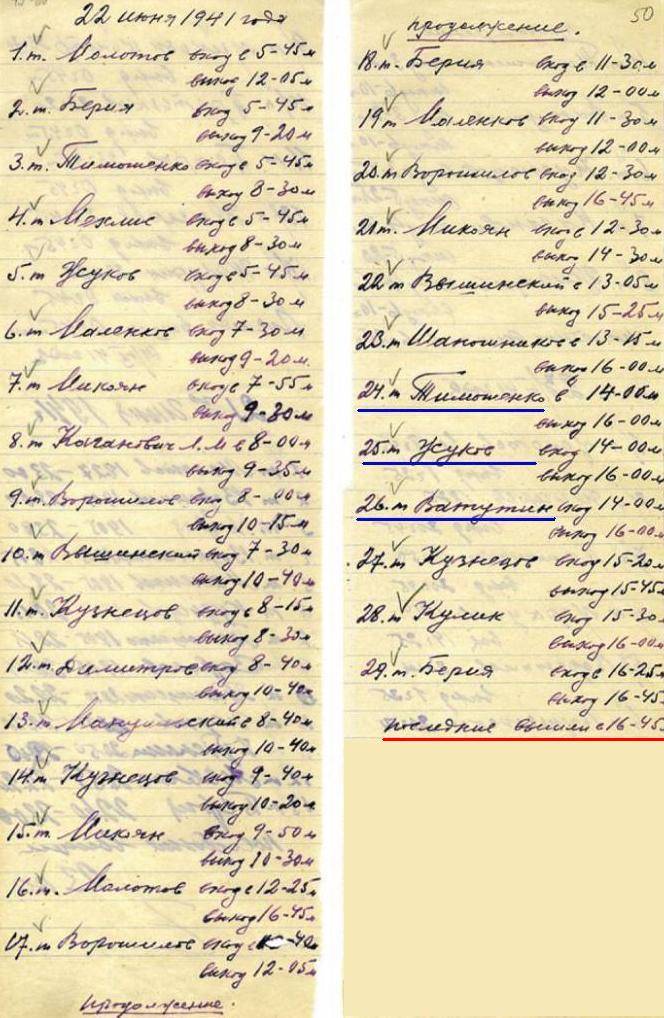 22 июня 1941 года
1. т. Молотов вход в 5-45м
выход 12-05м
2. т. Берия вход 5-45м
выход 9-20м
3. т. Тимошенко вход в 5-45м
выход 8-30м
4. т. Мехлис вход в 5-45м
выход 8-30м
5. т Жуков вход в 5-45м
выход 8-30м
6. т. Маленков вход 7-30м
выход 9-20м.
7. т. Микоян вход в 7-55м
выход 9-30м
8. т. Каганович Л.М в 8-00м
выход 9-35м
9. т. Ворошилов вход 8-00м
выход 10-15м
10. т. Вышинский вход 7-30м
выход 10-40м
11. т. Кузнецов вход в 8-15м
выход 8-30м
12. т. Димитров вход 8-40м
выход 10-40м
13. т. Мануильский в 8-40м
выход 10-40м
14. т. Кузнецов вход 9-40м
выход 10-20м
15. т. Микоян вход 9-50м
выход 10-30м
16. т. Молотов вход в 12-25м
выход 16-45м
17. т Ворошилов вход в -40м
выход 12-05м
продолжение.
50
продолжение.
18. т. Берия вход в 11-30м
выход 12-00м
19 т Маленков вход 11-30м
выход 12-00м
20. т Ворошилов вход 12-30м
выход 16-45м
21 т. Микоян вход в 12-30м
выход 14-30м
22 т Вышинский в 13-05м
выход 15-25м
23. т Шапошников в 13-15м
выход 16-00м
24. т Тимошенко в 14-00м
выход 16-00м
25 т Жуков вход 14-00м
выход 16-00м
26. т Ватутин вход 14-00м
выход 16-00м
27. т Кузнецов вход 15-20м
выход 15-45м
28. т Кулик вход 15-30м
выход 16-00м
29. т. Берия вход в 16-25м
выход 16-45
последние вышли в 16-45